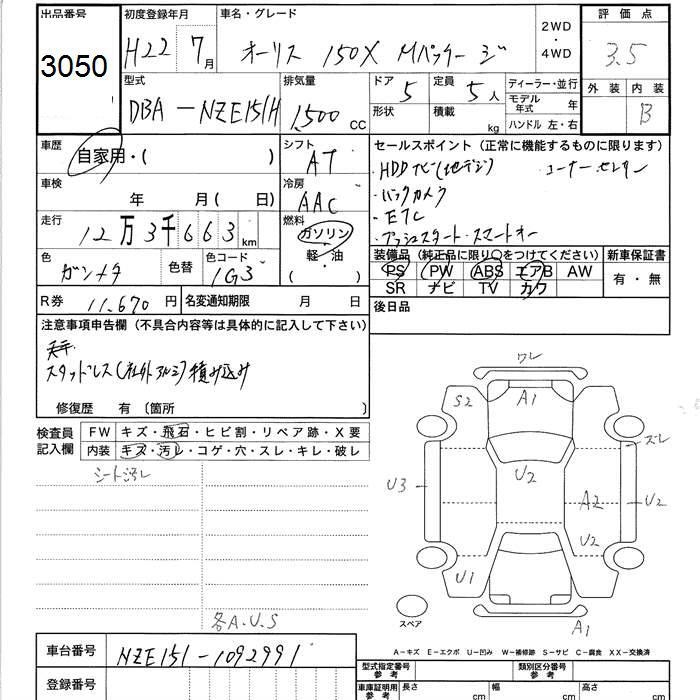 出品番号 初度登録年月 車名・グレード 2WD・4WD 評価点
3050 H22 7月 オーリス 150X Mパッケージ 3.5
外装 内装 B
型式 排気量 ドア 定員 ディーラー・並行
DBA-NZE151H 1,500cc 5 5人 モデル年式 年
形状 積載 kg ハンドル 左・右
車歴 自家用・( ) シフト AT
セールスポイント (正常に機能するものに限ります)
・HDDナビ(地デジ) コーナーセンサー
・バックカメラ
・ETC
・プッシュスタート・スマートキー
車検 年 月(日) 冷房 AAC
走行 12万3千663km 燃料 ガソリン・軽・油 ( )
色 ガンメタ 色替 色コード 1G3
装備品 (純正品に限り○をつけてください) 新車保証書
PS PW ABS エアB AW 有・無
SR ナビ TV カワ
R券 11,670円 名変通知期限 月 日 後日品
注意事項申告欄 (不具合内容等は具体的に記入して下さい)
スタッドレス(社外アルミ)積み込み
修復歴 有〔箇所 〕
検査員記入欄 FW キズ・飛石・ヒビ割・リペア跡・X要
内装 キズ・汚レ・コゲ・穴・スレ・キレ・破レ
シート汚レ
各A.U.S
ワレ
S2 A1
ズレ
U3 U2 A2 U2
U2
U1
A1
スペア
A-キズ E-エクボ U-凹み W-補修跡 S-サビ C-腐食 XX-交換済
車台番号 NZE151-1092991
登録番号
型式指定番号 参考 類別区分番号 参考
車庫証明用 参考 長さ cm 幅 cm 高さ cm